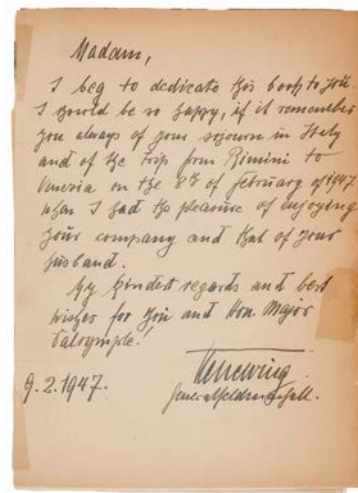 Madam,
I beg to dedicate this book to you.
I would be so happy, if it remember
you always of your sojourn in Italy
and of the trip from Rimini to
Venezia on the 8th of february of 1947
when I had the pleasure of enjoying
your company and that of your
husband.
My kindest regards and best
wishes for you and Hon. Major
Dalrymple!
9.2.1947.
Kesselring
Generalfeldmarschall.